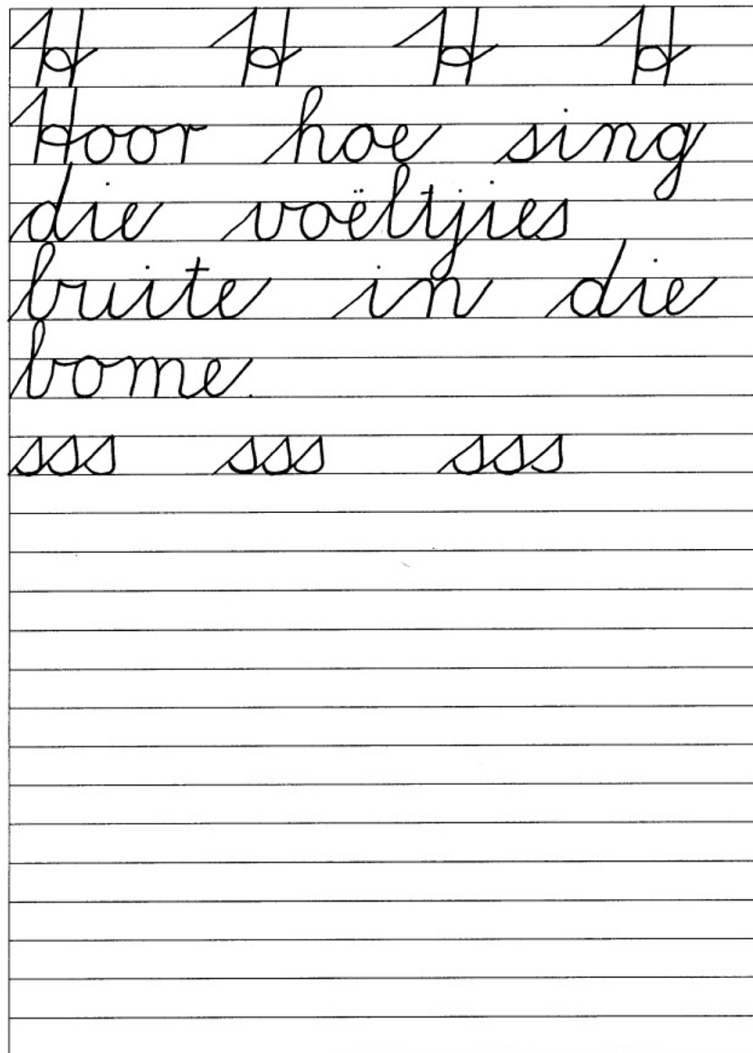 H H H H
Hoor hoe sing
die voëltjies
buite in die
bome.
sss sss sss